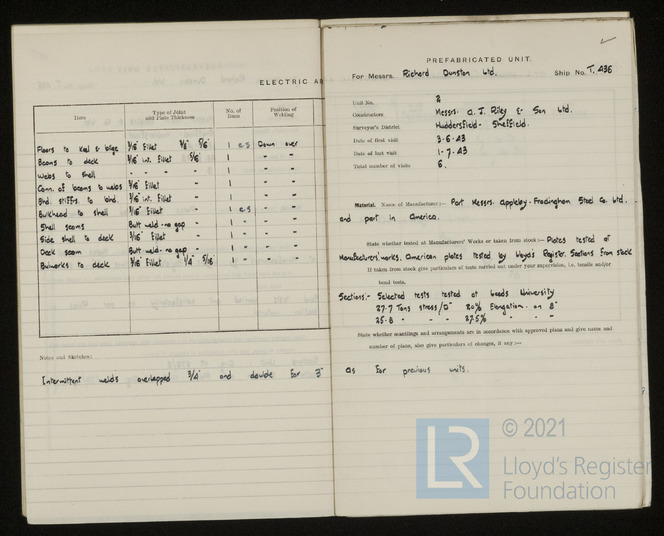 ELECTRIC A
Item Type of Joint and Plate Thickness No. of Runs Position of Welding
Floors to keel & bilge 3/16" Fillet 3/8" 5/16" 1 e.s Down over
Beams to deck 3/16" int. fillet 5/16" 1 " "
Webs to shell " " " " 1 " "
Conn. of beams to webs 3/16" Fillet " 1 " "
Bhd. stiffs. to bhd. 3/16" int. Fillet " 1 " "
Bulkhead to shell 3/16" Fillet " 1 e.s " "
Shell seams Butt weld - no gap " 1 " "
Side shell to deck 3/16" Fillet " 1 " "
Deck seam Butt weld - no gap " 1 " "
Bulworks to deck 3/16" Fillet 1/4" 5/16 1 " "
Notes and Sketches:
Intermittent welds overlapped 3/4" and double for 3"
PREFABRICATED UNIT.
For Messrs. Richard Dunston Ltd. Ship No. T. 436
Unit No. 2
Constructors Messrs. A. J. Riley & Son Ltd.
Surveyor's District Huddersfield - Sheffield.
Date of first visit 3-6-43
Date of last visit 1-7-43
Total number of visits 6.
Material. Name of Manufacturer:— Part Messrs. Appleby-Frodingham Steel Co. Ltd.
and part in America.
State whether tested at Manufacturers' Works or taken from stock:— Plates tested at
Manufacturers works. American plates tested by Lloyds Register. Sections from stock
If taken from stock give particulars of tests carried out under your supervision, i.e. tensile and/or
bend tests.
Sections:- Selected tests tested at Leeds University
27·7 Tons stress/□" 20% Elongation on 8"
25·8 " " " 27·5% " " "
State whether scantlings and arrangements are in accordance with approved plans and give name and
number of plans, also give particulars of changes, if any:—
As for previous units.
© 2021
LR
Lloyd's Register
Foundation